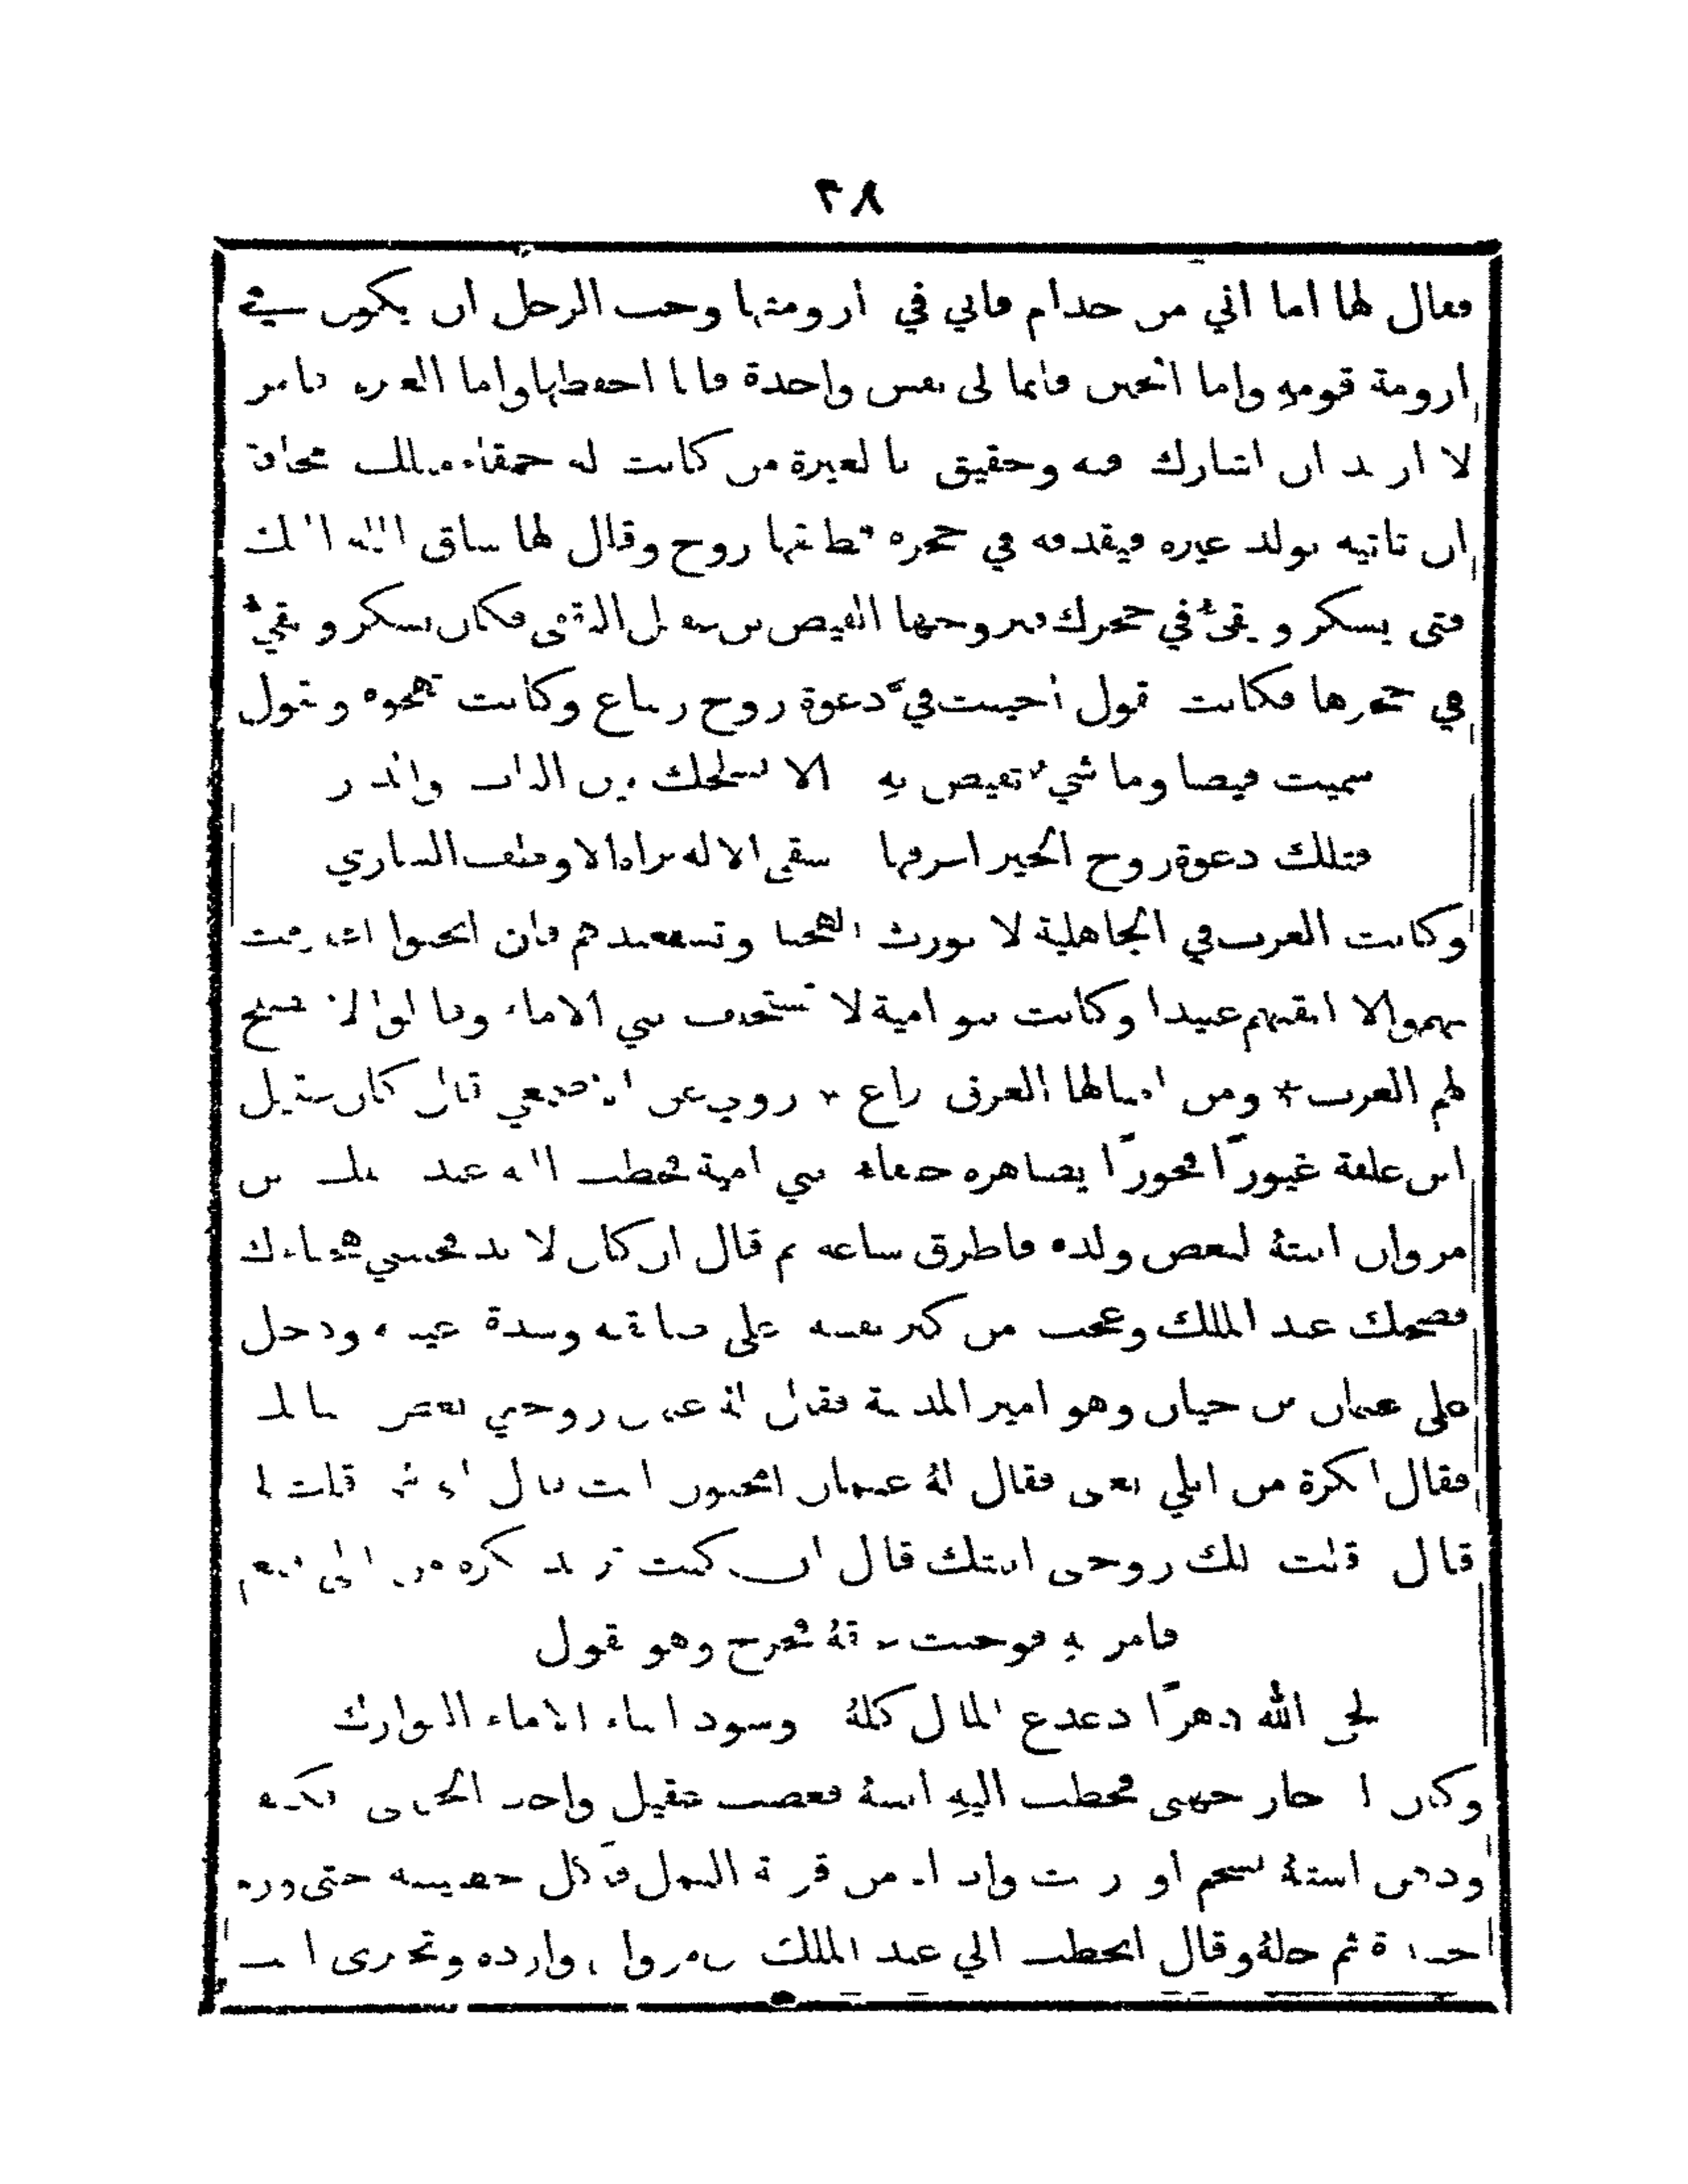 ٢٨
فقال لها اما اني من جذام فاني في ارومتها وحب الرجل ان يكون في
ارومة قومهِ واما الجبن فانما لي نفس واحدة فانا احفظها واما الغيرة فامر
لا اريد ان اشارك فيه وحقيق بالغيرة من كانت له حمقاء مثلك مخافة
ان تاتيه بولد غيره فيقذفه في حجره فطلقها روح وقال لها ساق الله اليك
فتى يسكر ويقيءُ في حجرك فتزوجها الفيض بن الثقفي فكان يسكر ويقيءُ
في حجرها فكانت تقول اجيبت فيَّ دعوة روح بن زنباع وكانت تهجوه وتقول
سميت فيضا وما شيءٌ تفيض بهِ الا لسلحك بين الباب والدار
فتلك دعوة روح الخير اعرفها سقى الاله الاوطف الساري
وكانت العرب في الجاهلية لا تورث الهجنا وتستعبدهم فان انجبوا اعترفت
بهم والا ابقتهم عبيدا وكانت بنو امية لا تستخلف بني الاماء وقالوا لا تصلح
لهم العرب * ومن امثالها العرق نزاع * روي عن الاصمعي قال كان عقيل
ابن علفة غيورًا فخورًا يصاهره خلفاء بني امية فخطب اليه عبد الملك بن
مروان ابنتهُ لبعض ولده فاطرق ساعه ثم قال ان كان لا بد فجنبني هجناءك
فضحك عبد الملك وعجب من كبر نفسه على ضائقته وشدة عيشه ودخل
على عثمان بن حيان وهو امير المدينة فقال لهُ عثمان زوجني بعض بناتك
فقال ابكرة من ابلي تعني فقال لهُ عثمان امجنون انت قال اي شيء قلت لي
قال قلت لك زوجني ابنتك قال ان كنت تريد بكرة من ابلي فنعم
فامر بهِ فوجئت عنقهُ فخرج وهو يقول
لحى الله دهرًا ذعذع المال كلهُ وسود ابناء الاماء العوارك
وكان لهُ جار جهني فخطب اليهِ ابنتهُ فغضب عقيل واخذ الجهني فكتفه
ودهن استهُ بشحم وادناه من قرية النمل فاكل خصيتيه حتى ورم
ثم حلهُ وقال ايخطب الي عبد الملك بن مروان وارده وتجترئ انت